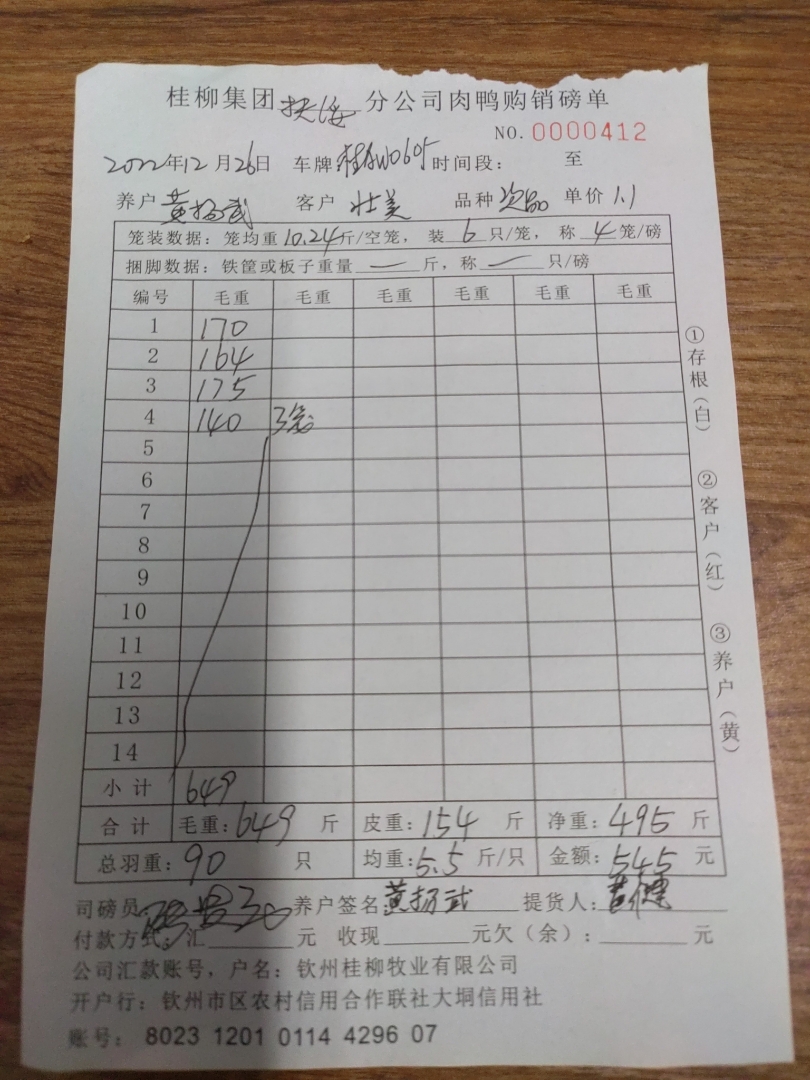 桂柳集团扶绥分公司肉鸭购销磅单
NO. 0000412
2022年12月26日 车牌桂AW0605时间段： 至
养户黄扬武 客户 壮美 品种 次品 单价 1.1
笼装数据：笼均重10.24斤/空笼，装6只/笼，称4笼/磅
捆脚数据：铁筐或板子重量—斤，称—只/磅
编号 毛重 毛重 毛重 毛重 毛重 毛重
1 170
2 164
3 175
4 140 3笼
5
6
7
8
9
10
11
12
13
14
小计 649
合计 毛重：649 斤 皮重：154 斤 净重：495 斤
总羽重：90 只 均重：5.5 斤/只 金额：545 元
司磅员： 养户签名黄扬武 提货人：
付款方式：汇 元 收现 元欠（余）： 元
公司汇款账号，户名：钦州桂柳牧业有限公司
开户行：钦州市区农村信用合作联社大垌信用社
账号： 8023 1201 0114 4296 07
①存根（白）
②客户（红）
③养户（黄）